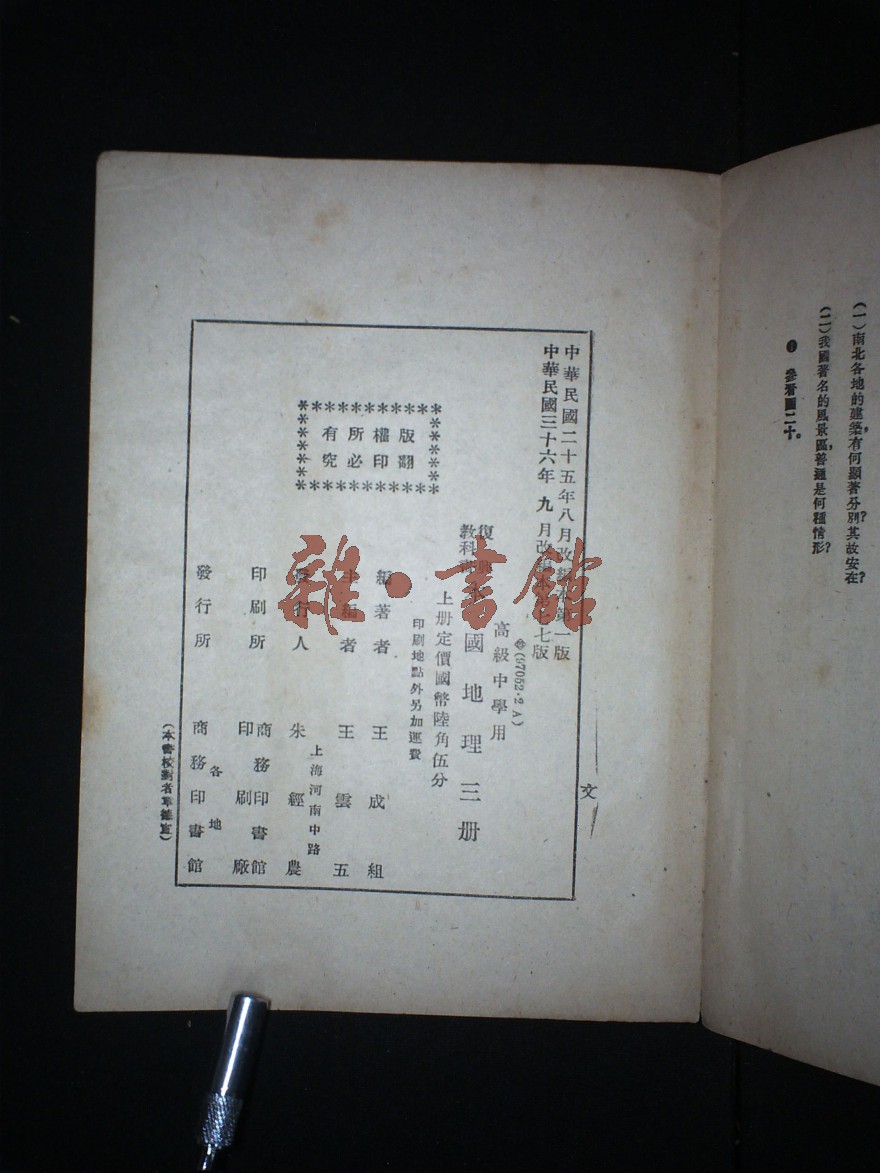 (一)南北各地的建築,有何顯著分別?其故安在?
(二)我國著名的風景區,普通是何種情形?
❶ 參看圖二十。
文
中華民國二十五年八月改編本第一版
中華民國三十六年九月改編本七版
(57052·2A)
高級中學用
復興
教科書
本國地理三册
上册定價國幣陸角伍分
印刷地點外另加運費
版權所有
翻印必究
編著者 王成組
主編者 王雲五
上海河南中路
發行人 朱經農
印刷所 商務印書館
印刷廠
各地
發行所 商務印書館
雜·書館